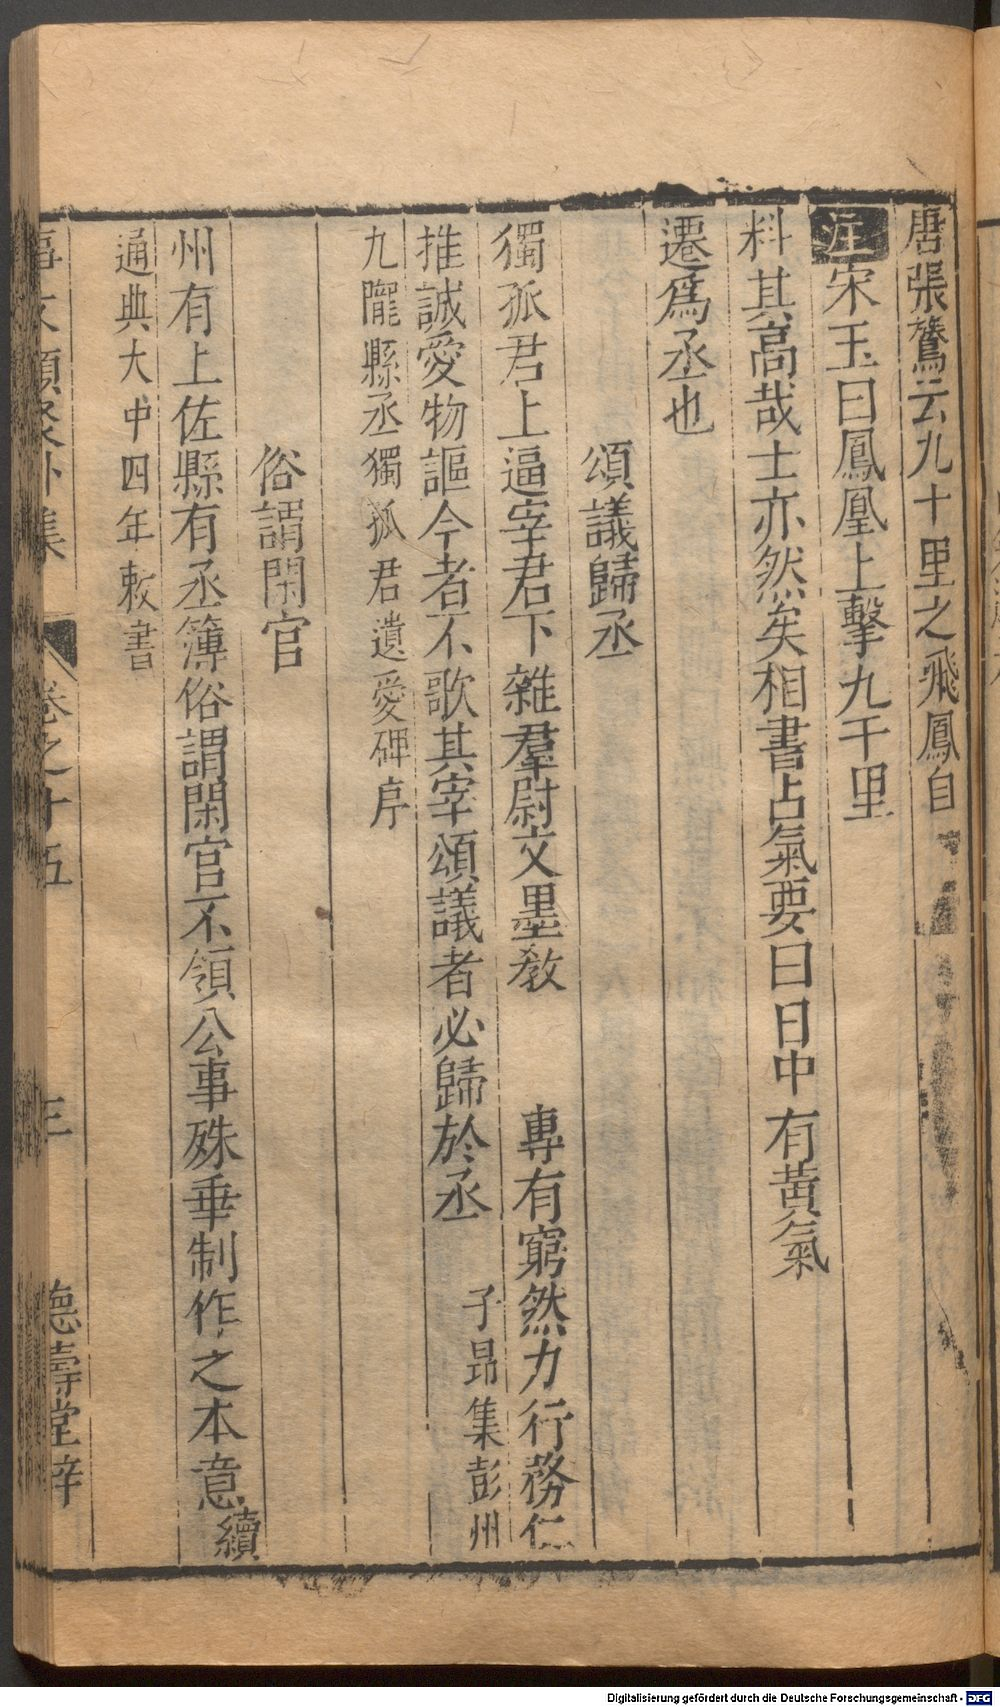 唐張鷟云九十里之飛鳳自
注宋玉曰鳳凰上擊九千里
料其高哉士亦然矣相書占氣要曰日中有黃氣
遷爲丞也
頌議歸丞
獨孤君上逼宰君下雜羣尉文墨敎 專有窮然力行務仁
推誠愛物謳今者不歌其宰頌議者必歸於丞 子昂集彭州
九隴縣丞獨狐君遺愛碑序
俗謂閑官
州有上佐縣有丞簿俗謂閑官不領公事殊乖制作之本意 續
通典大中四年敕書
事文類聚外集 卷之十五 三 德壽堂梓
Digitalisierung gefördert durch die Deutsche Forschungsgemeinschaft - DFG